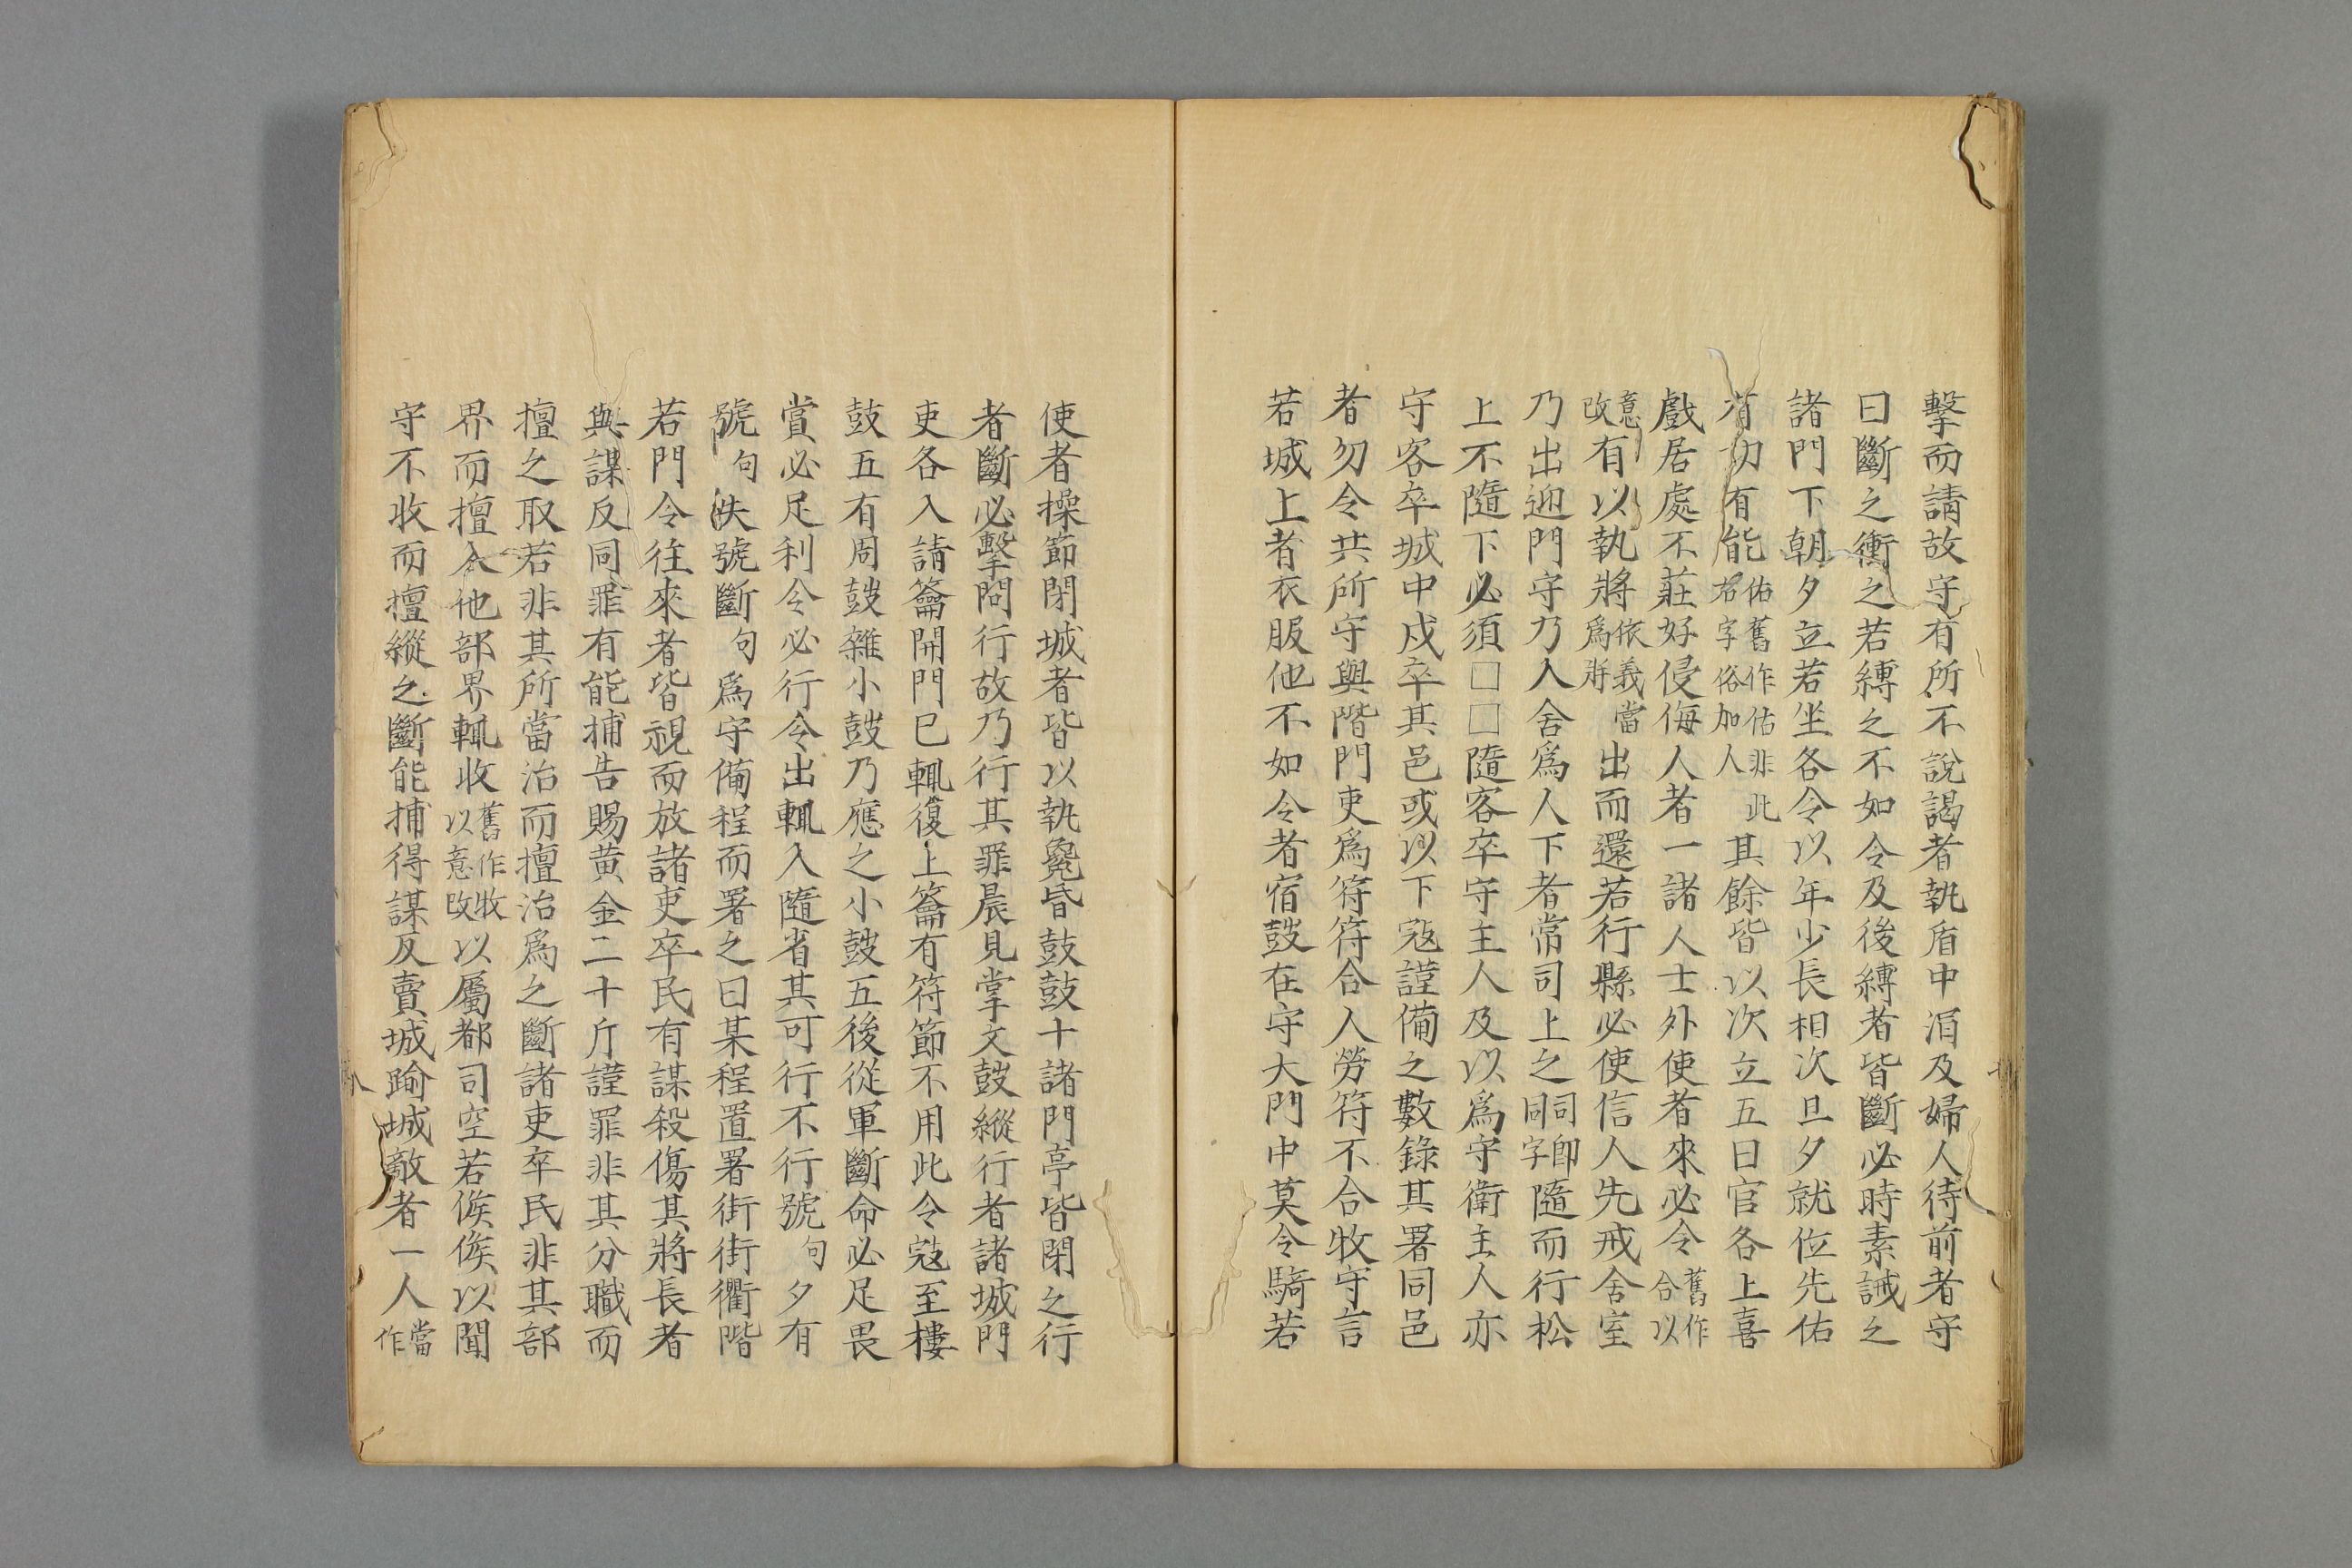 擊而請故守有所不說謁者執盾中涓及婦人待前者守
曰斷之衝之若縛之不如令及後縛者皆斷必時素誡之
諸門下朝夕立若坐各令以年少長相次旦夕就位先佑
有功有能佑舊作佑非此右字俗加人其餘皆以次立五日官各上喜
戲居處不莊好侵侮人者一諸人士外使者來必令舊作合以
意改有以執將依義當爲將出而還若行縣必使信人先戒舍室
乃出迎門守乃入舍爲人下者常司上之司卽同字隨而行松
上不隨下必須□□隨客卒守主人及以爲守衛主人亦
守客卒城中戍卒其邑或以下寇謹備之數錄其署同邑
者勿令共所守與階門吏爲符符合入勞符不合牧守言
若城上者衣服他不如令者宿鼓在守大門中莫令騎若
使者操節閉城者皆以執毚昏鼓鼓十諸門亭皆閉之行
者斷必擊問行故乃行其罪晨見掌文鼓縱行者諸城門
吏各入請籥開門已輒復上籥有符節不用此令寇至樓
鼓五有周鼓雜小鼓乃應之小鼓五後從軍斷命必足畏
賞必足利令必行令出輒入隨省其可行不行號句夕有
號句失號斷句爲守備程而署之曰某程置署街街衢階
若門令往來者皆視而放諸吏卒民有謀殺傷其將長者
與謀反同罪有能捕告賜黃金二十斤謹罪非其分職而
擅之取若非其所當治而擅治爲之斷諸吏卒民非其部
界而擅入他部界輒收舊作牧以意改以屬都司空若侯侯以聞
守不收而擅縱之斷能捕得謀反賣城踰城敵者一人當作